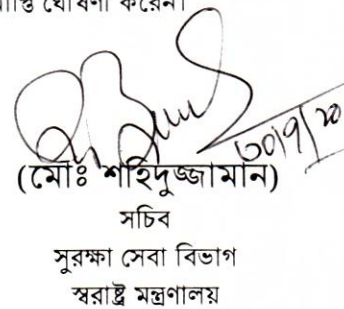 ঘোষণা করেন।
৩০/৭/২০
(মোঃ শহিদুজ্জামান)
সচিব
সুরক্ষা সেবা বিভাগ
স্বরাষ্ট্র মন্ত্রণালয়